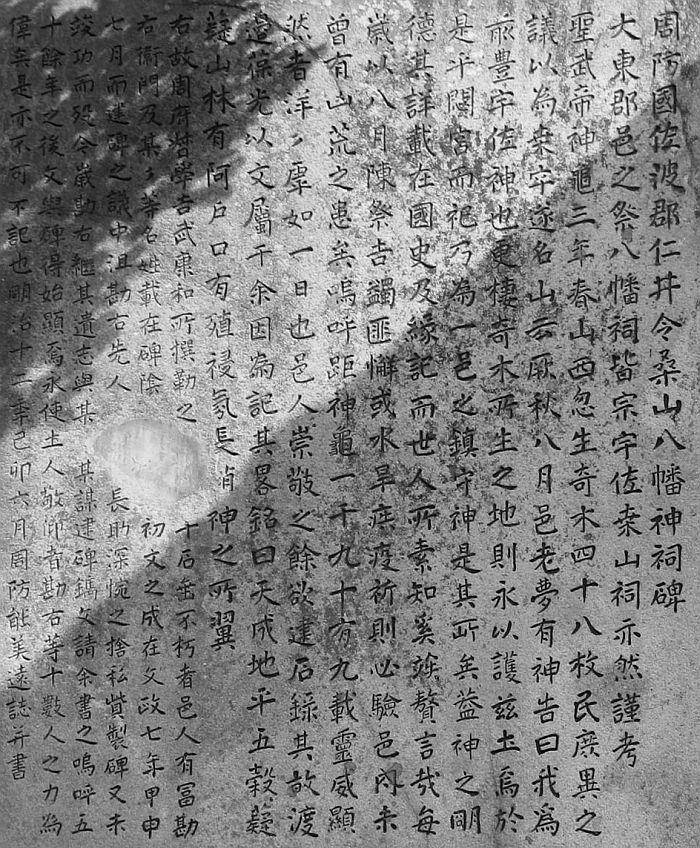 周防國佐波郡仁井令桑山八幡神祠碑
大東郡邑之祭八幡祠皆宗宇佐桒山祠亦然謹考
聖武帝神龜三年春山西忽生奇木四十八枚民庶異之
議以為桒字遂名山云厥秋八月邑老夢有神告曰我為
西豊宇佐神也更棲奇木所生之地則永以護兹土焉於
是乎閟宮而祀乃為一邑之鎮守神是其所矣葢神之明
德其詳載在國史及緣記而世人所素知奚竢贅言哉每
歳以八月陳祭吉蠲匪懈或水旱疾疫祈則必驗邑內未
曾有凶荒之患矣嗚呼距神龜一千九十有九載靈威顯
然者洋〻虖如一日也邑人崇敬之餘欲建石錄其故渡
邉保光以文屬于余因為記其畧銘曰天成地平五穀薿
薿山林有阿戶口有殖祲氛長消神之所翼
右故周府督學吉武康和所撰勤之于石垂不朽者邑人有冨勘
右衛門及某〻等名姓載在碑陰初文之成在文政七年甲申
七月而建碑之議中沮勘右先人長助深惋之捨私貲製碑又未
竣功而歿今歳勘右繼其遺志與某某謀建碑鐫文請余書之嗚呼五
十餘年之後文與碑得始顯焉永使土人敬仰者勘右等十數人之力為
偉矣是亦不可不記也明治十二年己卯六月周防能美遠誌并書